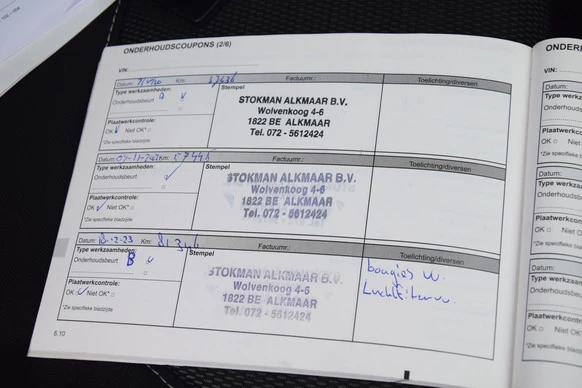 ONDERHOUDSCOUPONS (2/6)
VIN:
Datum: Km: Factuurnr.: Toelichting/diversen
Type werkzaamheden: A v
Onderhoudsbeurt
Plaatwerkcontrole:
OK v Niet OK*
*Zie specifieke bladzijde
Stempel
STOKMAN ALKMAAR B.V.
Wolvenkoog 4-6
1822 BE ALKMAAR
Tel. 072 - 5612424
Datum: Km: 57446 Factuurnr.: Toelichting/diversen
Type werkzaamheden:
Onderhoudsbeurt v
Plaatwerkcontrole:
OK v Niet OK*
*Zie specifieke bladzijde
Stempel
STOKMAN ALKMAAR B.V.
Wolvenkoog 4-6
1822 BE ALKMAAR
Tel. 072 - 5612424
Datum: 18-12-23 Km: Factuurnr.: Toelichting/diversen
Type werkzaamheden:
Onderhoudsbeurt B v
Plaatwerkcontrole:
OK v Niet OK*
*Zie specifieke bladzijde
Stempel
STOKMAN ALKMAAR B.V.
Wolvenkoog 4-6
1822 BE ALKMAAR
Tel. 072 - 5612424
bougies
6.10
ONDERH
VIN:
Datum:
Type werkz
Onderhoudsb
Plaatwerkc
OK Niet
*Zie specifieke
Datum:
Type werkza
Onderhoudsbe
Plaatwerkco
OK Niet O
*Zie specifieke b
Datum:
Type werkzaa
Onderhoudsbeur
Plaatwerkcontr
OK Niet OK
*Zie specifieke bla